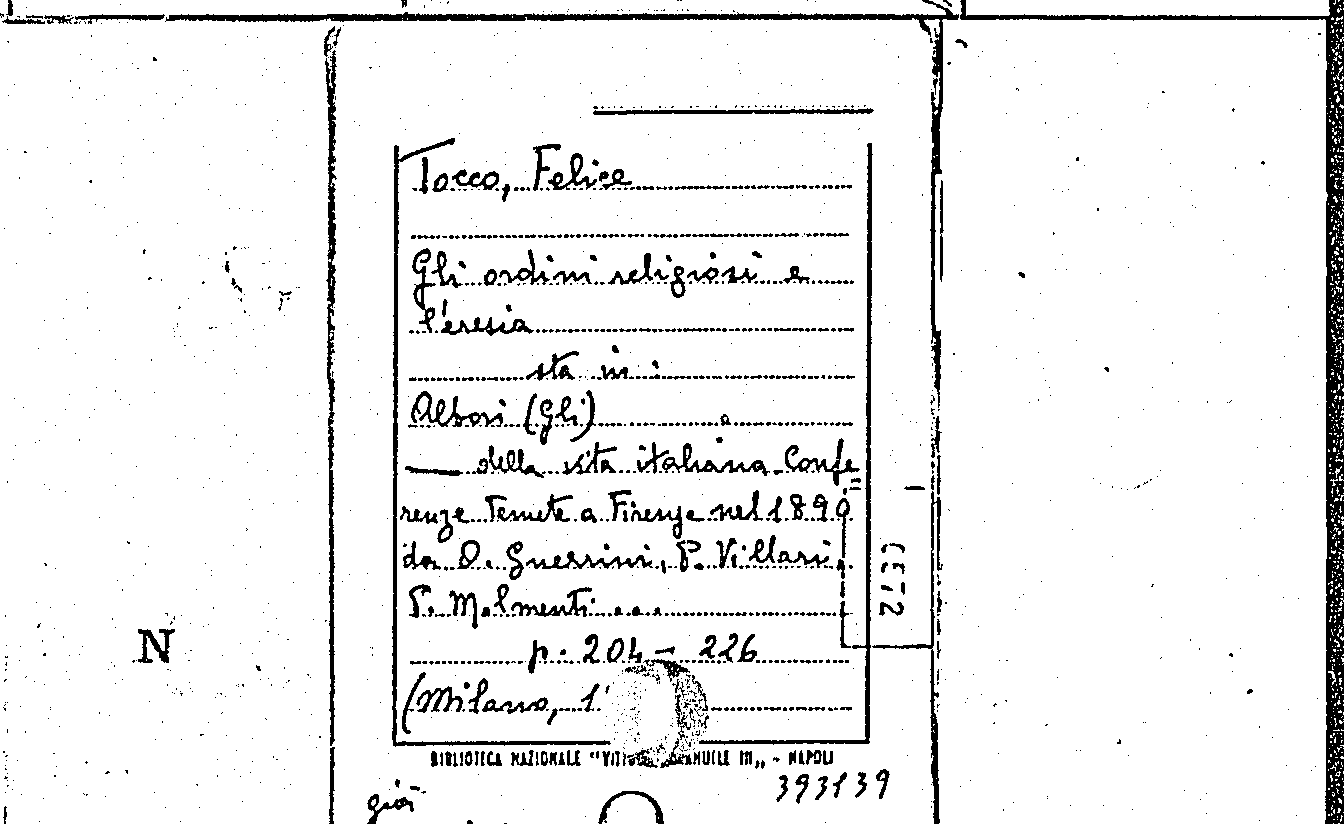 Tocco, Felice
Gli ordini religiosi e
l'eresia
sta in :
Albori (Gli)
— della vita italiana. Confe=
renze tenute a Firenze nel 1890
da O. Guerrini, P. Villari,
P. Molmenti ...
p. 204 - 226
(Milano, 1
BIBLIOTECA NAZIONALE "VITT EMANUELE III„ - NAPOLI
393139
già
N